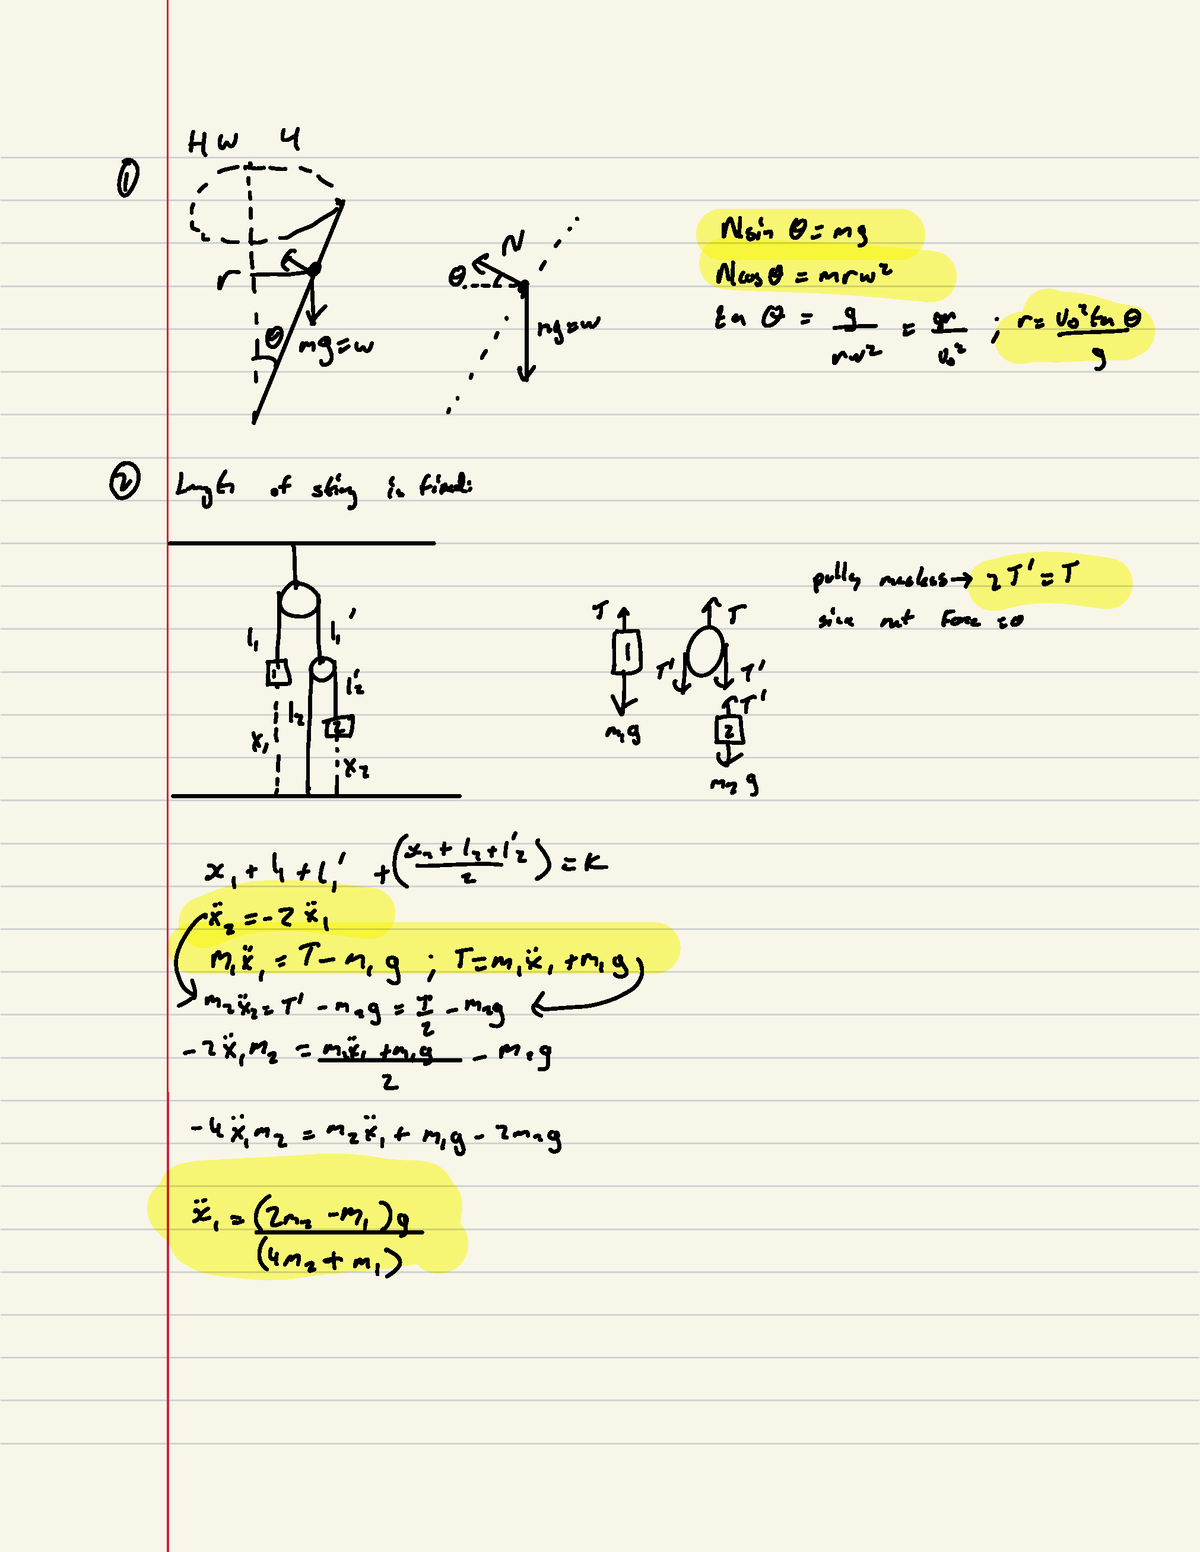 HW 4
①
r
θ
mg=w
N
θ
mg=w
N sin θ = mg
N cos θ = mrw²
tan θ = g/rw² = gr/v₀² ; r = v₀² tan θ/g
② Length of string is fixed:
l₁ l₁'
1
l₂' l₂
2
x₁ x₂
T T
1
T' T'
m₁g
T'
2
m₂g
pulley massless → 2T' = T
since net Force = 0
x₁ + l₁ + l₁' + ((x₂ + l₂ + l₂')/2) = K
ẍ₂ = -2ẍ₁
m₁ẍ₁ = T - m₁g ; T = m₁ẍ₁ + m₁g
m₂ẍ₂ = T' - m₂g = T/2 - m₂g
-2ẍ₁m₂ = (m₁ẍ₁ + m₁g)/2 - m₂g
-4ẍ₁m₂ = m₂ẍ₁ + m₁g - 2m₂g
ẍ₁ = (2m₂ - m₁)g/(4m₂ + m₁)